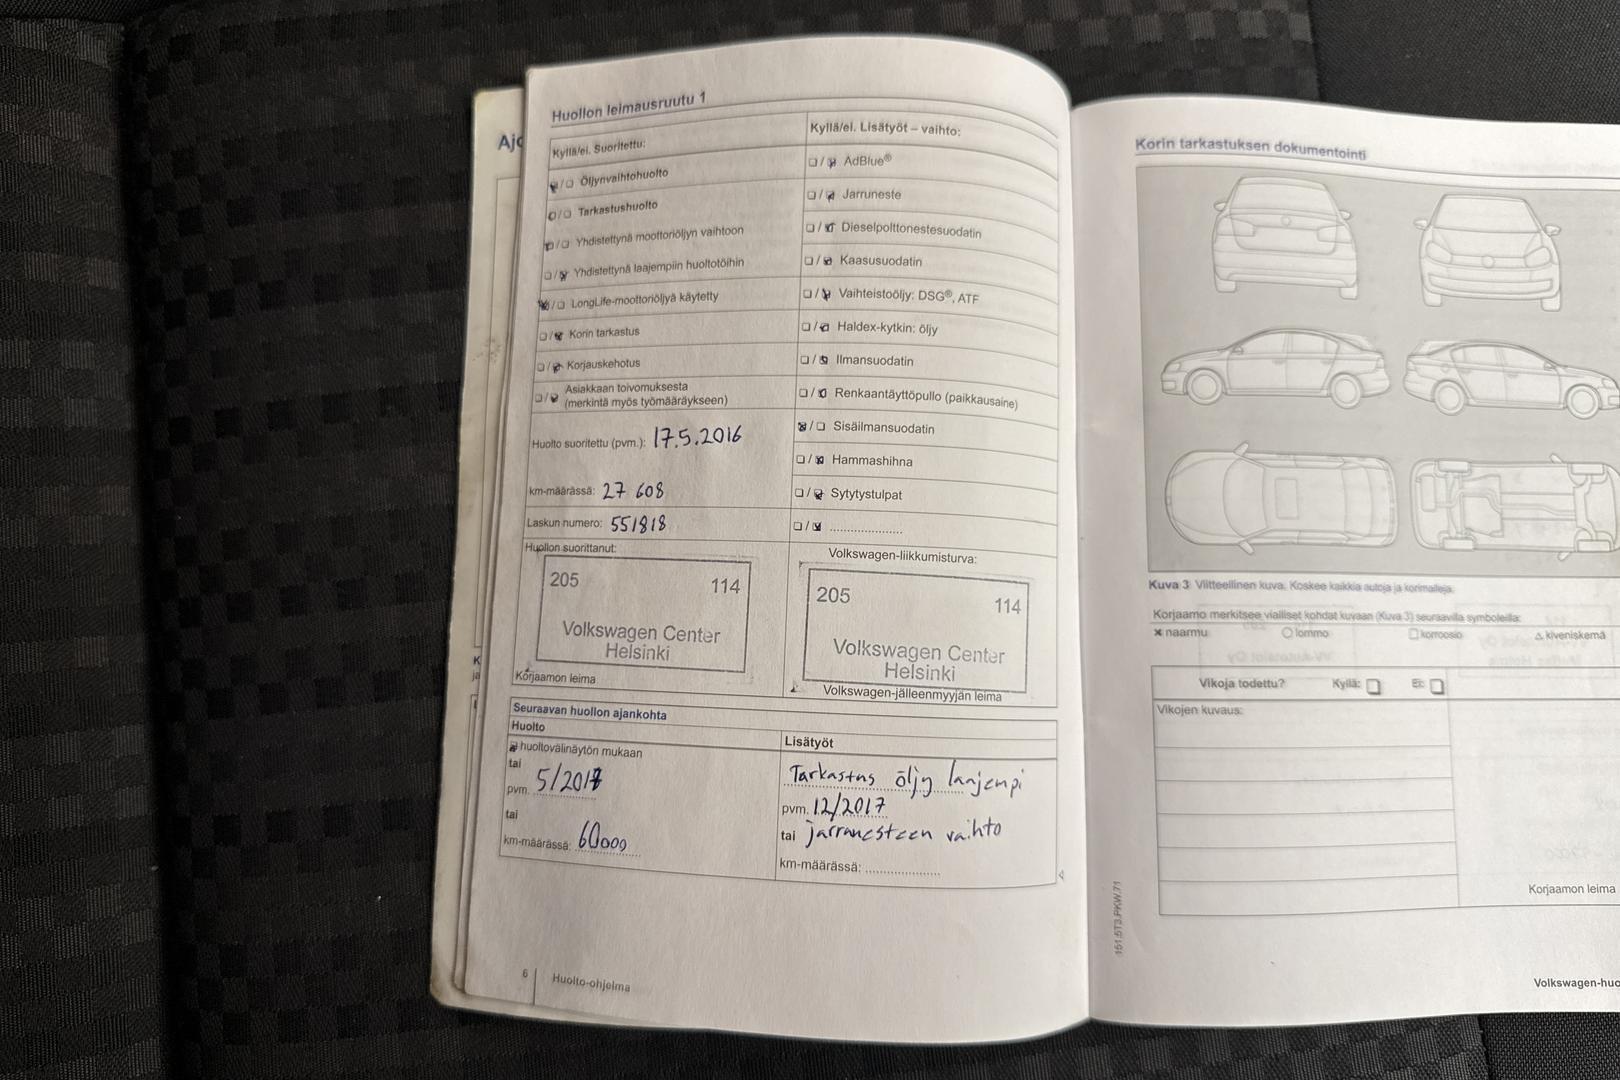 Ajo
Huollon leimausruutu 1
Kyllä/ei. Suoritettu:
☒/☐ Öljynvaihtohuolto
☐/☐ Tarkastushuolto
☒/☐ Yhdistettynä moottoriöljyn vaihtoon
☐/☒ Yhdistettynä laajempiin huoltotöihin
☒/☐ LongLife-moottoriöljyä käytetty
☐/☒ Korin tarkastus
☐/☒ Korjauskehotus
☐/☒ Asiakkaan toivomuksesta
(merkintä myös työmääräykseen)
Huolto suoritettu (pvm.): 17.5.2016
km-määrässä: 27 608
Laskun numero: 551818
Huollon suorittanut:
205 114
Volkswagen Center
Helsinki
Korjaamon leima
Kyllä/ei. Lisätyöt – vaihto:
☐/☒ AdBlue®
☐/☒ Jarruneste
☐/☒ Dieselpolttonestesuodatin
☐/☒ Kaasusuodatin
☐/☒ Vaihteistoöljy: DSG®, ATF
☐/☒ Haldex-kytkin: öljy
☐/☒ Ilmansuodatin
☐/☒ Renkaantäyttöpullo (paikkausaine)
☒/☐ Sisäilmansuodatin
☐/☒ Hammashihna
☐/☒ Sytytystulpat
☐/☒ ....................
Volkswagen-liikkumisturva:
205 114
Volkswagen Center
Helsinki
Volkswagen-jälleenmyyjän leima
Seuraavan huollon ajankohta
Huolto
☒ huoltovälinäytön mukaan
tai
pvm. 5/2017
tai
km-määrässä: 60000
Lisätyöt
Tarkastus öljy laajempi
pvm. 12/2017
tai jarrunesteen vaihto
km-määrässä: ....................
6 Huolto-ohjelma
Korin tarkastuksen dokumentointi
Kuva 3 Viitteellinen kuva: Koskee kaikkia autoja ja korimalleja.
Korjaamo merkitsee vialliset kohdat kuvaan (Kuva 3) seuraavilla symboleilla:
✖ naarmu ○ lommo ☐ korroosio △ kiveniskemä
Vikoja todettu? Kyllä: ☐ Ei: ☐
Vikojen kuvaus:
Korjaamon leima
151.5T3.PKW.71
Volkswagen-huo